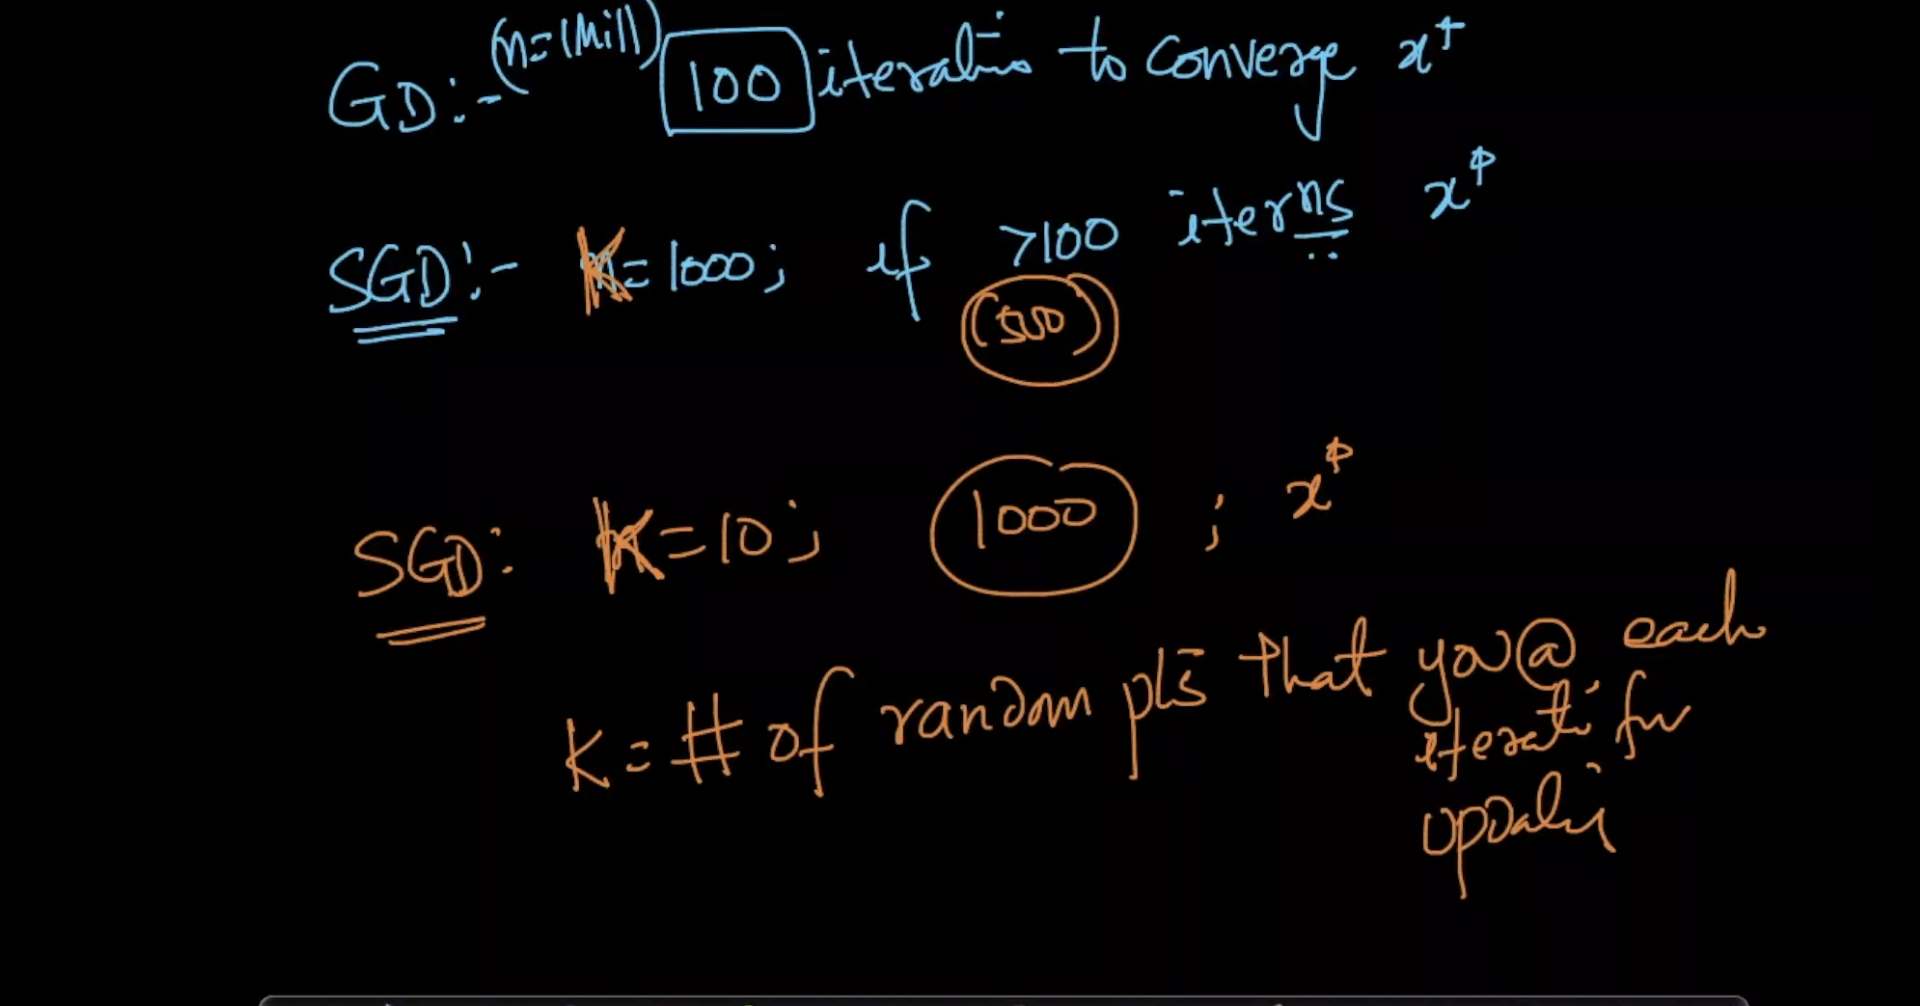 GD:- (n=1Mill) 100 iterations to converge x*
SGD:- K=1000; if >100 iterns x*
(500)
SGD: K=10; 1000 ; x*
K = # of random pts that you @ each
iterati for
updatin